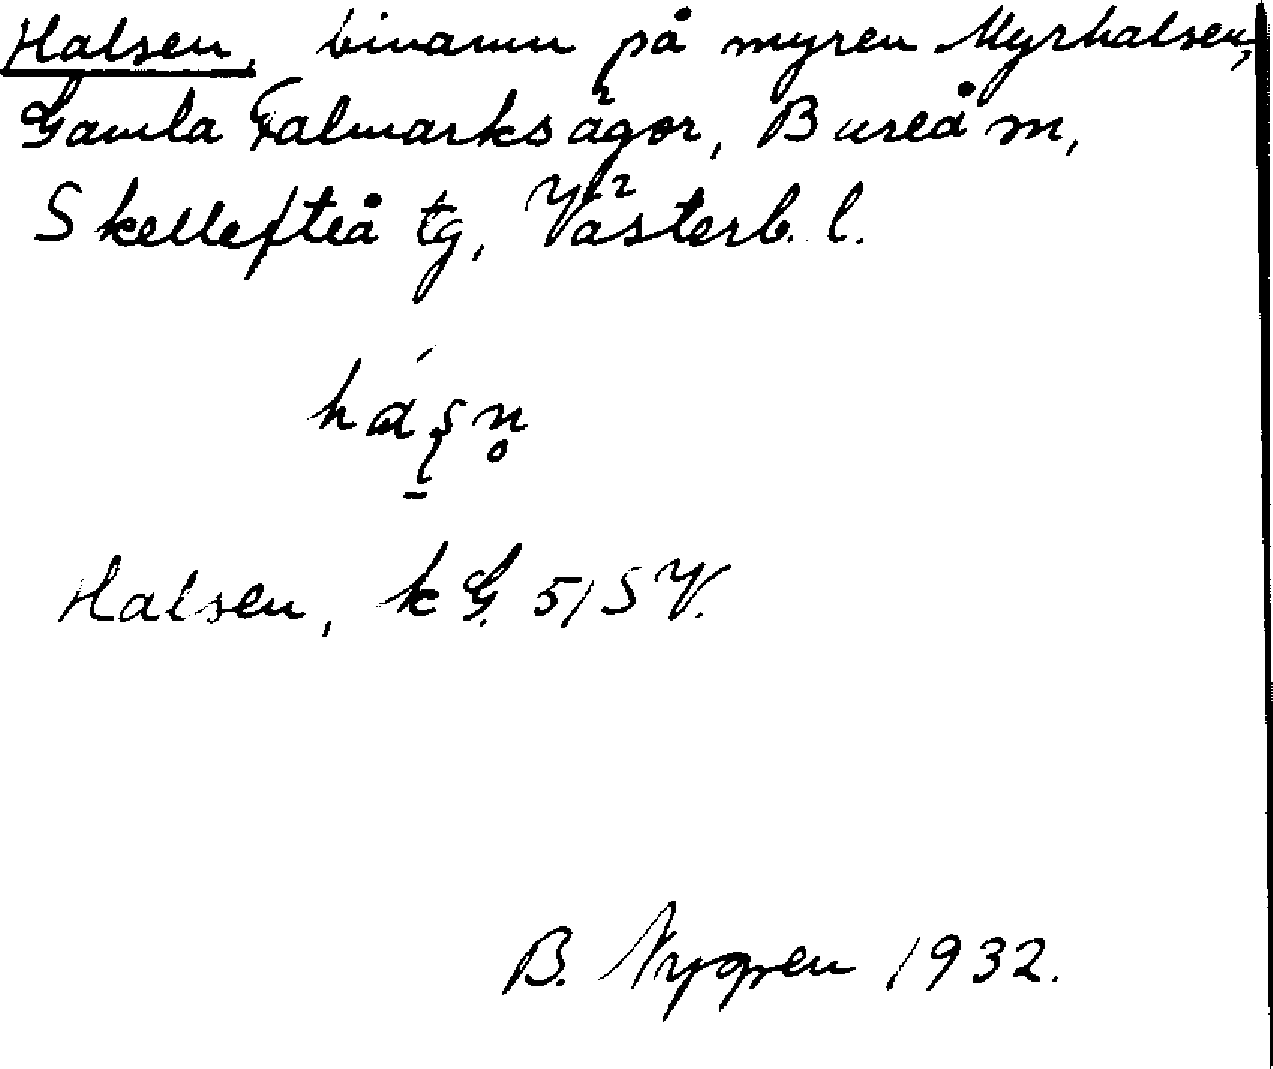 Halsen, binamn på myren Myrhalsen,
Gamla Falmarks ägor, Bureå m,
Skellefteå tg, Västerb. l.
hásn̥
Halsen, k G. 5/SV.
B. Nygren 1932.